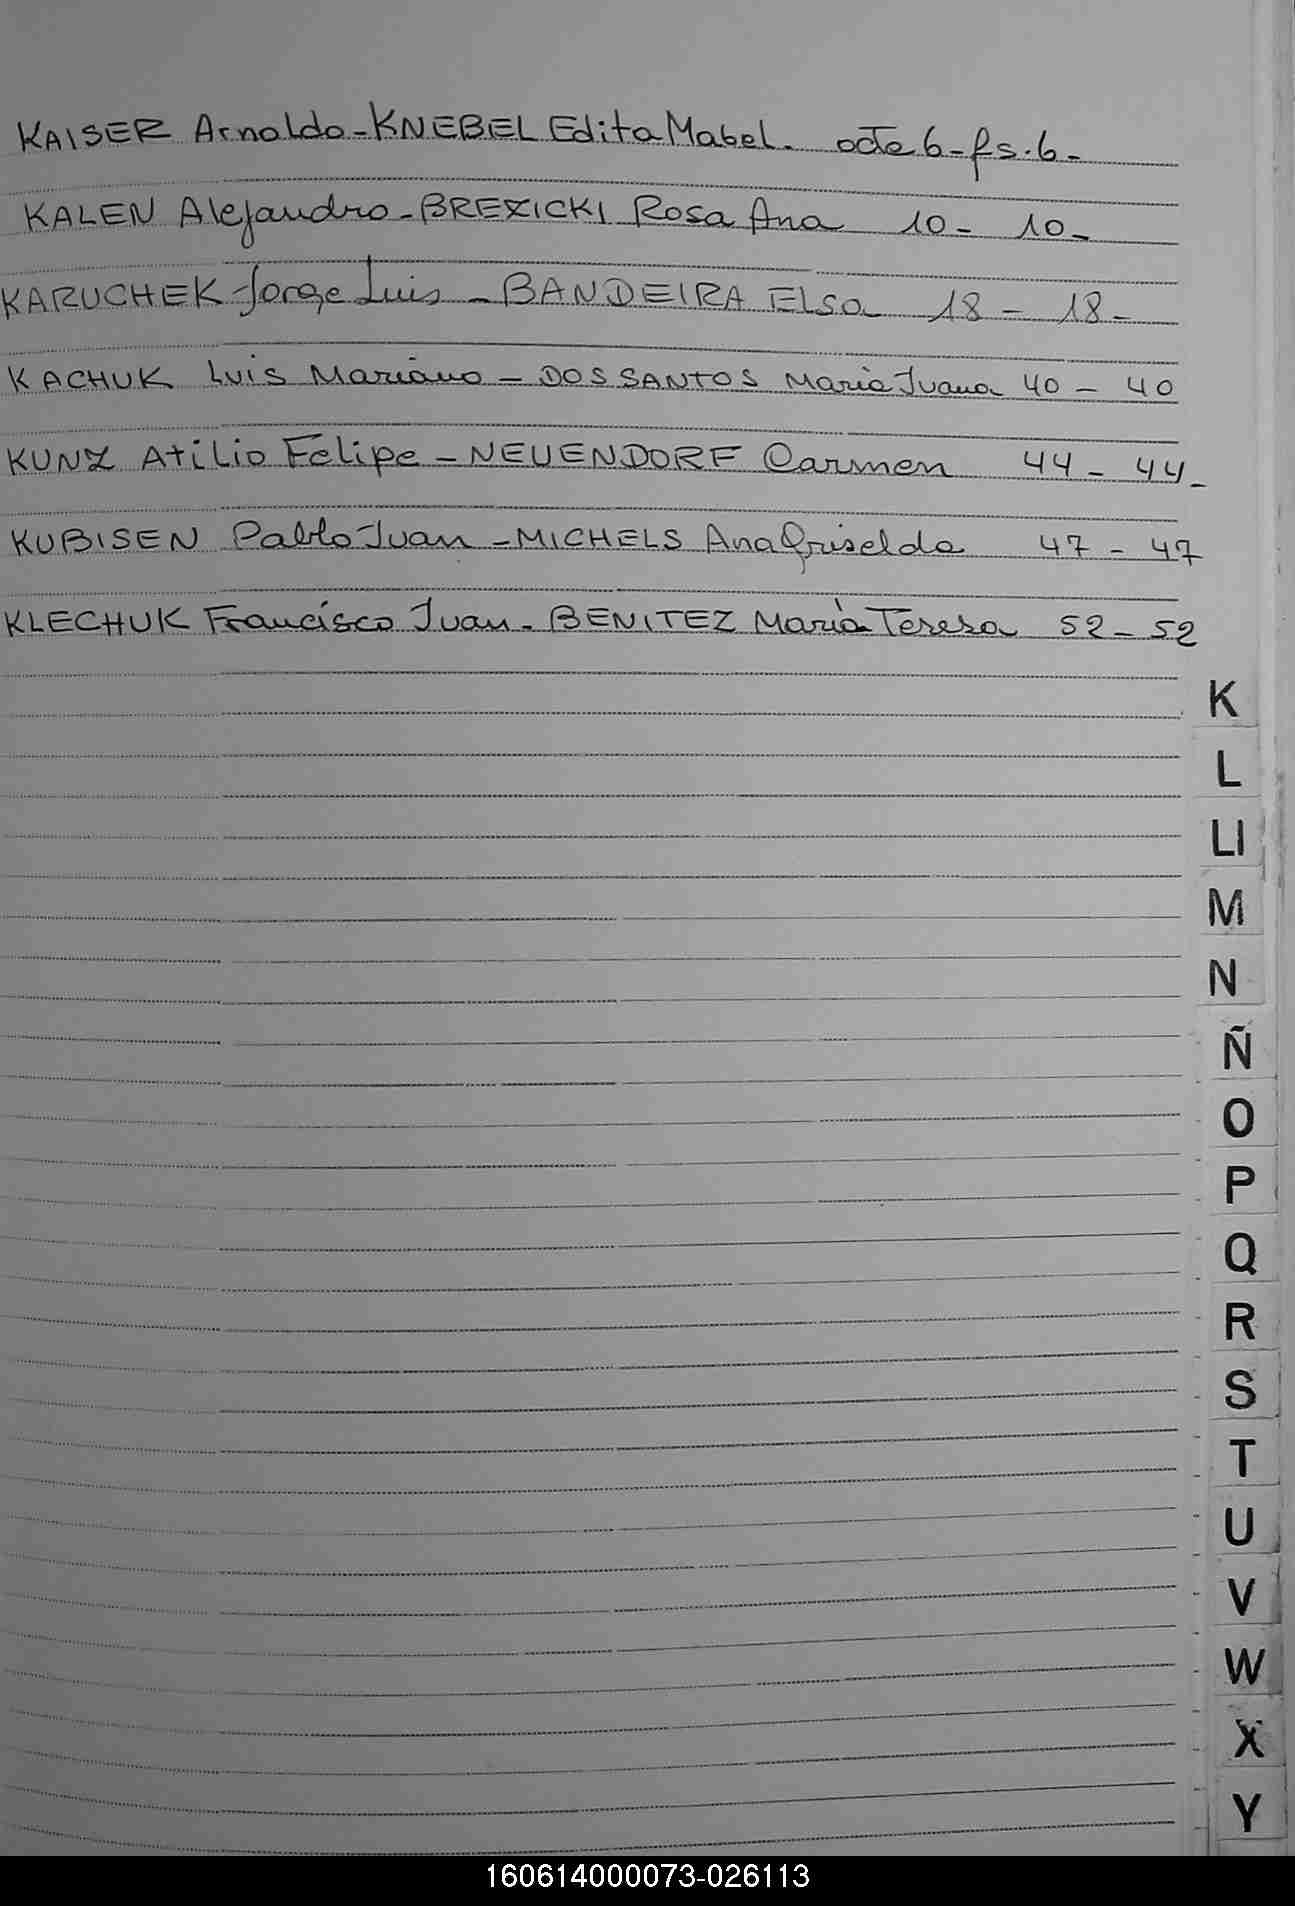 KAISER Arnaldo-KNEBEL Edita Mabel. acta 6-fs.6-
KALEN Alejandro-BREXICKI Rosa Ana 10- 10-
KARUCHEK Jorge Luis - BANDEIRA Elsa 18 - 18-
KACHUK Luis Mariano - DOS SANTOS Maria Juana 40 - 40
KUNZ Atilio Felipe - NEUENDORF Carmen 44 - 44-
KUBISEN Pablo Juan - MICHELS Ana Griselda 47 - 47
KLECHUK Francisco Juan - BENITEZ María Teresa 52 - 52
K
L
Ll
M
N
Ñ
O
P
Q
R
S
T
U
V
W
X
Y
160614000073-026113